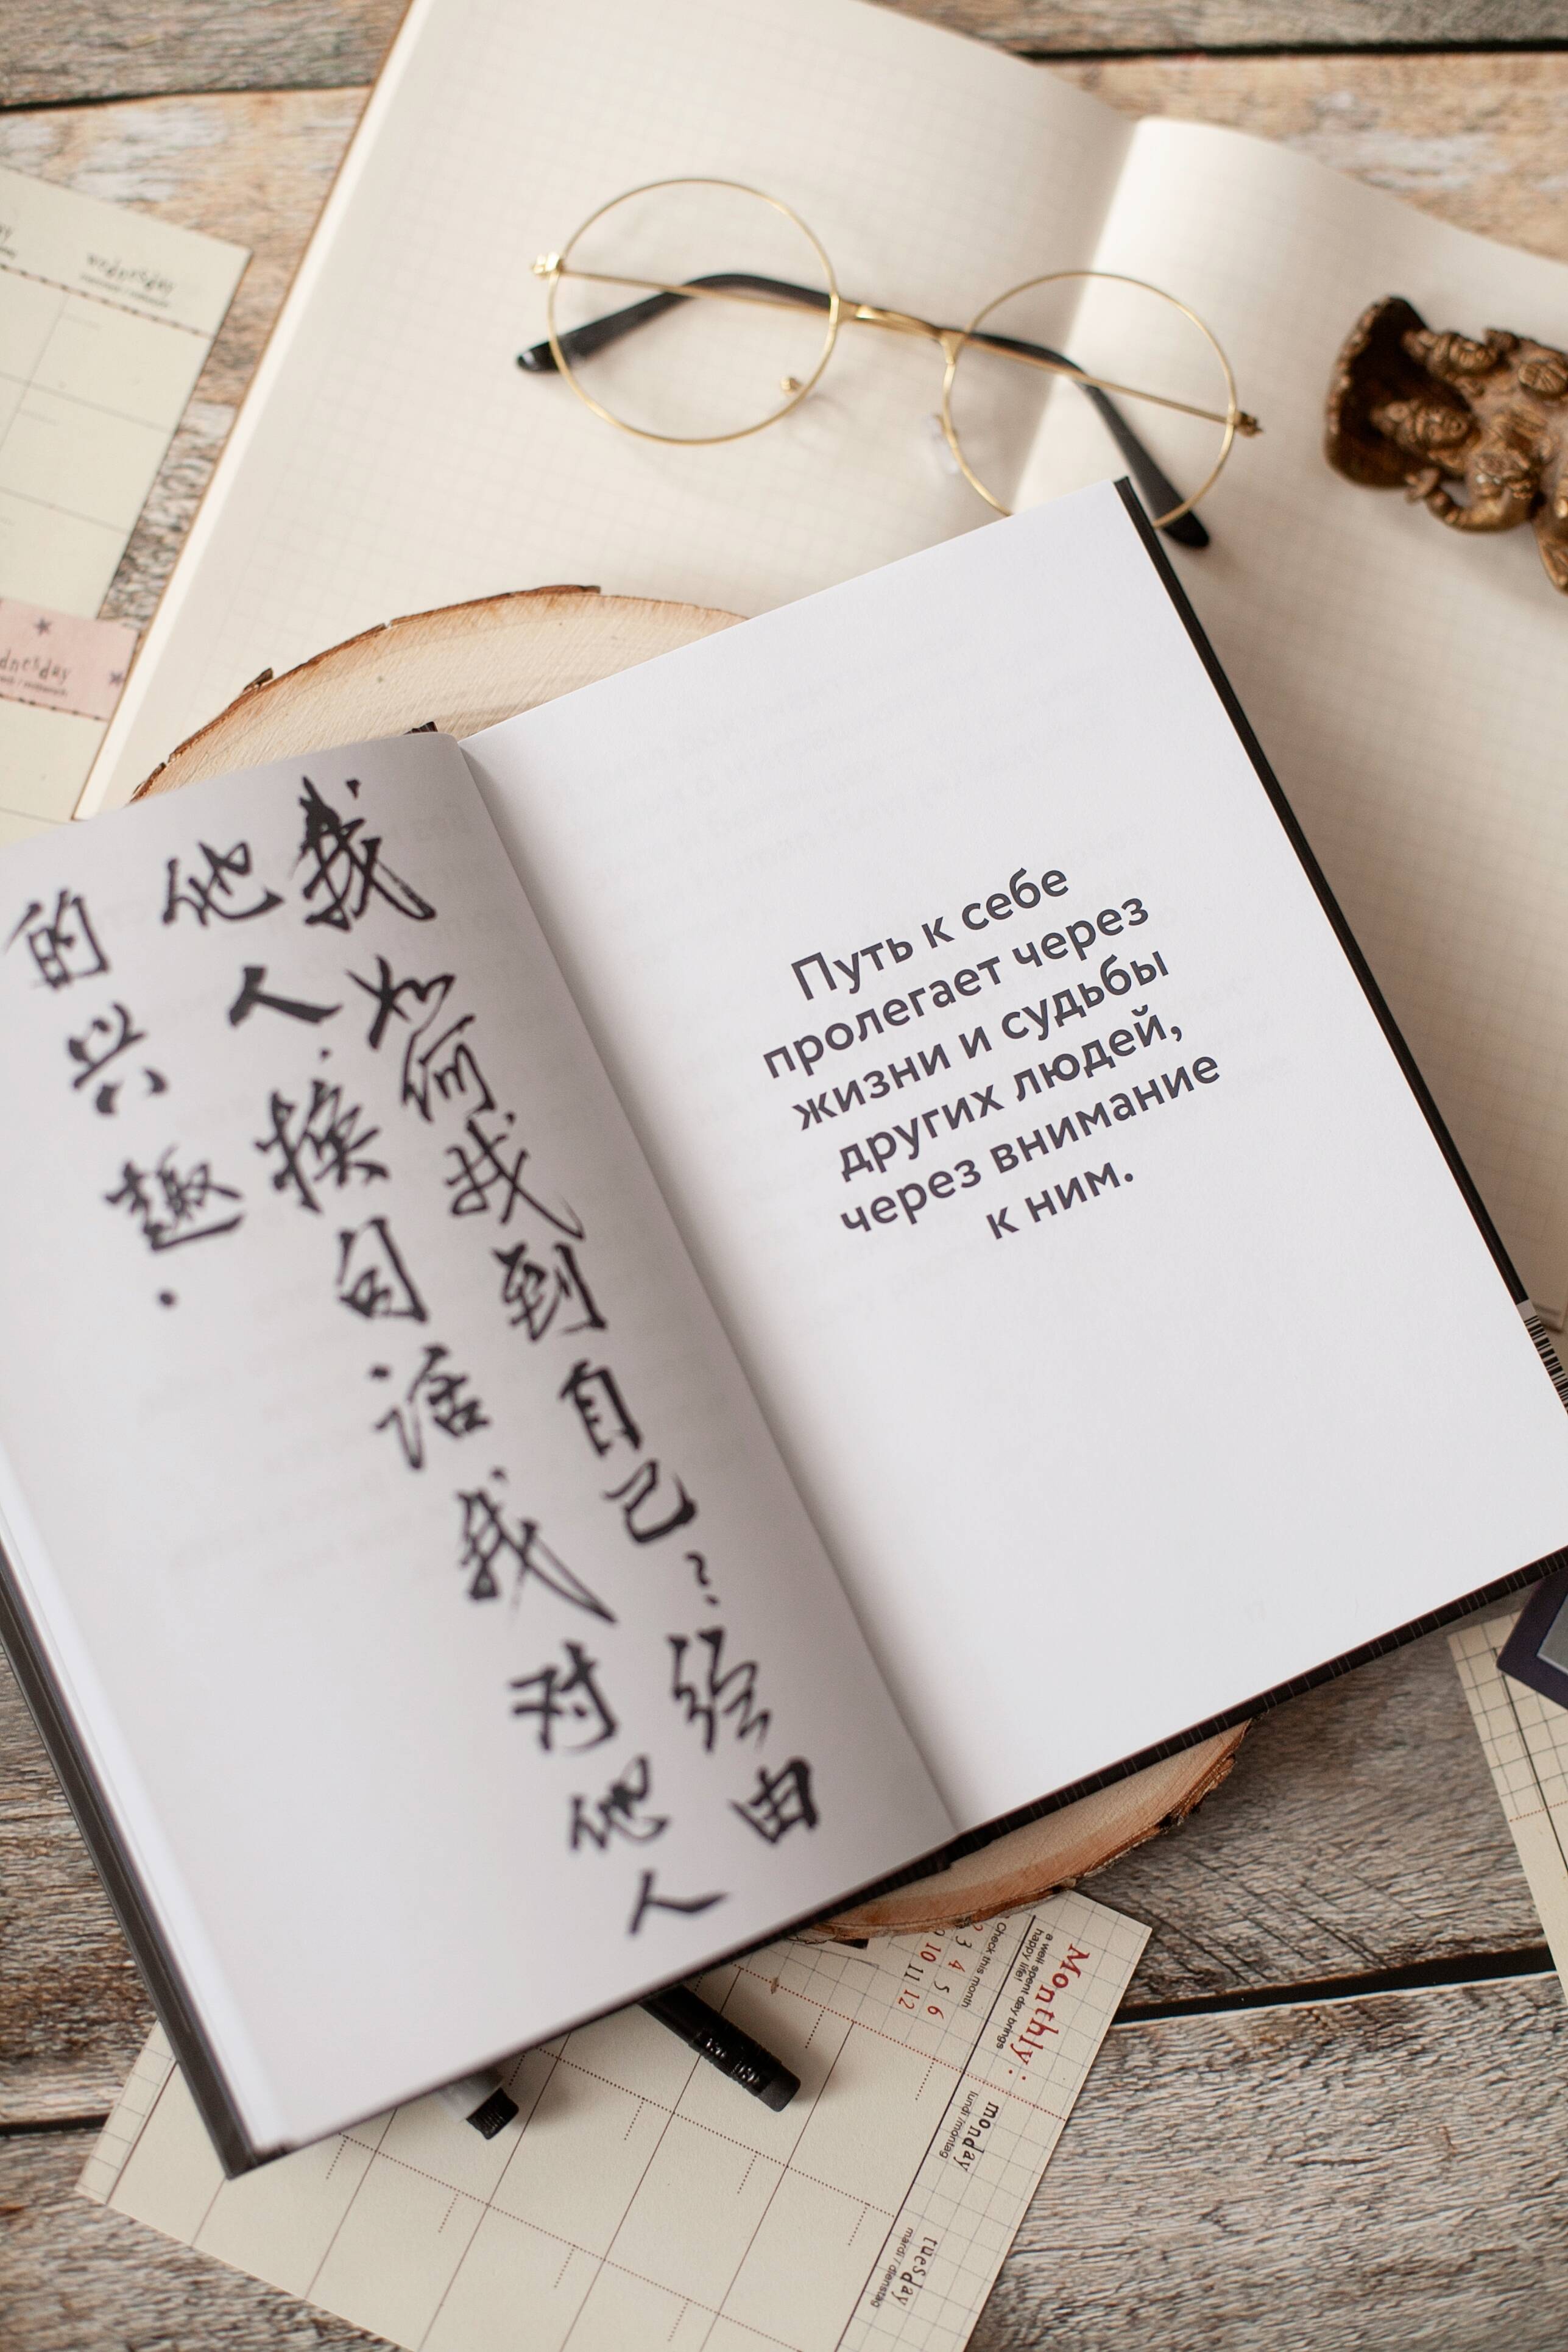 我如何找到自己?经由
他人.换句话我对他人
的兴趣.
Путь к себе
пролегает через
жизни и судьбы
других людей,
через внимание
к ним.
wednesday
Monthly.
a well spent day brings
happy life!
Check this month
3 4 5 6
10 11 12
monday
lundi / montag
tuesday
mardi / dienstag